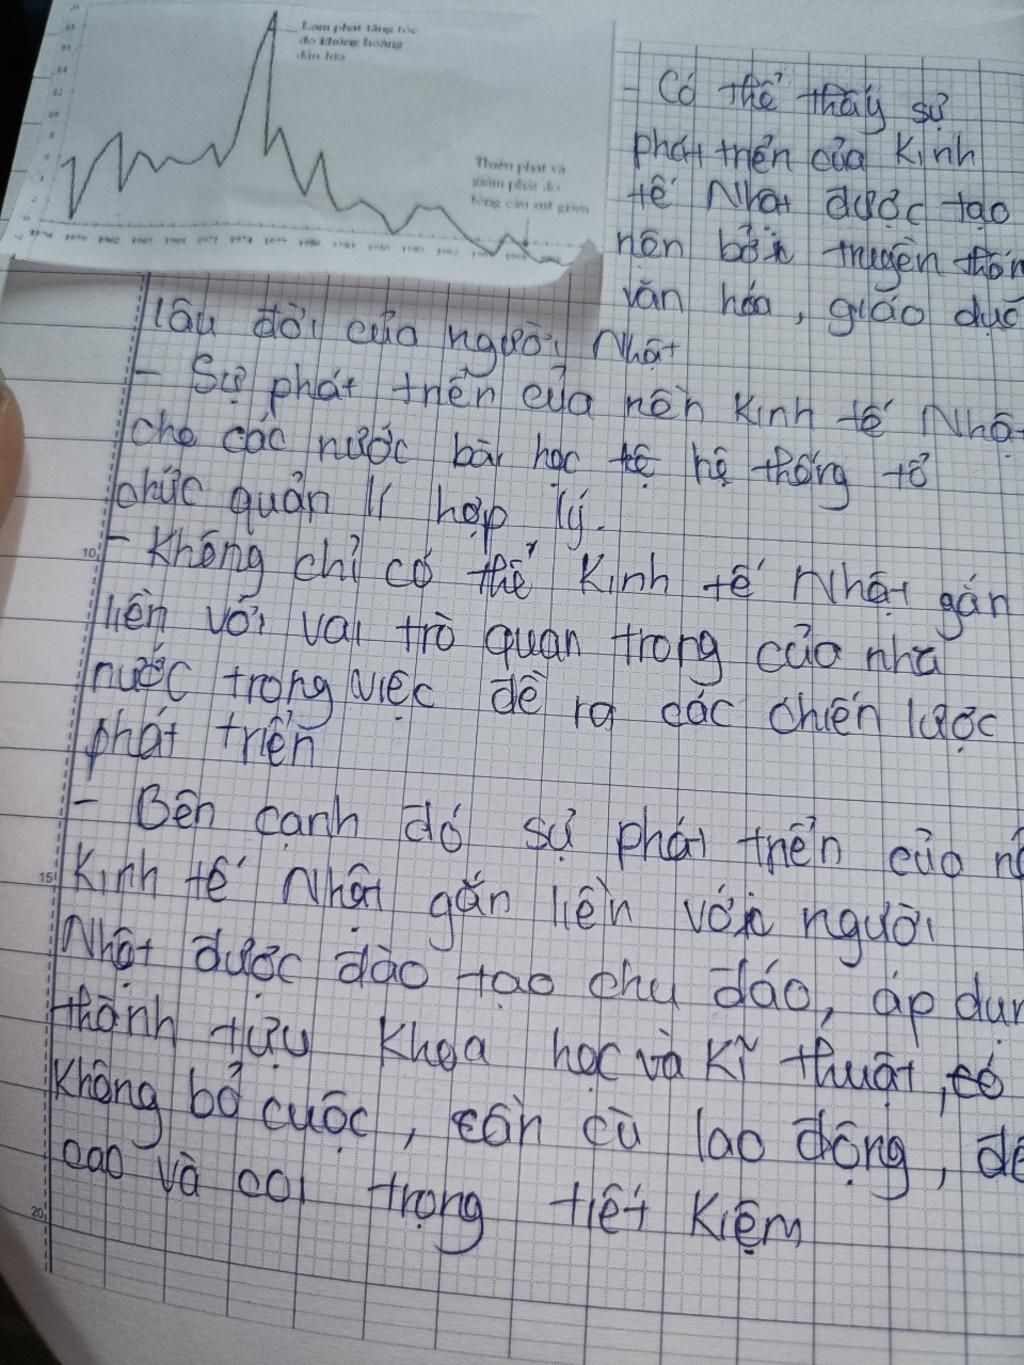 Lạm phát tăng tốc
do khủng hoảng
dầu lửa
Thiểu phát và
giảm phát do
tổng cầu suy giảm
- Có thể thấy sự
phát triển của Kinh
tế Nhật được tạo
nên bởi truyền thốn
văn hóa, giáo dục
lâu đời của người Nhật
- Sự phát triển của nền Kinh tế Nhậ
cho các nước bài học hệ thống tổ
chức quản lí hợp lý.
10
- Không chỉ có thể Kinh tế Nhật gắn
liền với vai trò quan trọng của nhà
nước trong việc đề ra các chiến lược
phát triển
- Bên cạnh đó sự phát triển của n
15
Kinh tế Nhật gắn liền với người
Nhật được đào tạo chu đáo, áp dụn
thành tựu Khoa học và Kĩ thuật, có
Không bỏ cuộc, cần cù lao động, đề
cao và coi trọng tiết Kiệm
20